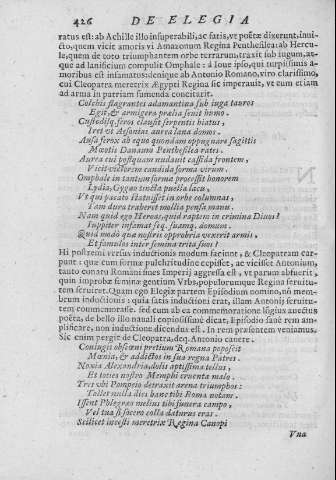 426 DE ELEGIA
ratus est: ab Achille illo insuperabili, ac satis, vt poëtæ dixerunt, inui-
cto, quem vicit amoris vi Amazonum Regina Penthesilea: ab Hercu-
le, quem de toto triumphantem orbe terrarum, traxit sub iugum, at-
que ad lanificium compulit Omphale: à Ioue ipso, qui turpissimis a-
moribus est infamatus: denique ab Antonio Romano, viro clarissimo,
cui Cleopatra meretrix Ægypti Regina sic imperauit, ve cum etiam
ad arma in patriam sumenda concitarit.
Colchis flagrantes adamantina sub iuga tauros
Egit, & armigera prælia seuit humo.
Custodisq. feros clausit serpentis hiatus,
Iret vt Aesonias aurea lana domos.
Ausa ferox ab equo quondam oppugnare sagittis
Mæotis Danaum Penthesilea rates.
Aurea cui postquam nudauit cassida frontem,
Vicit victorem candida forma virum.
Omphale in tantum formæ processit honorem
Lydia, Gygæo tincta puella lacu,
Vt qui pacato statuisset in orbe columnas,
Tam dura traheret mollia pensa manu.
Nam quid ego Heroas, quid raptem in crimina Diuos?
Iuppiter infamat seq. suamq. domum.
Quid modò quæ nostris opprobria vexerit armis,
Et famulos inter femina trita suos?
Hi postremi versus inductionis modum faciunt, & Cleopatram car-
punt: quæ cum formæ pulchritudine cepisset, ac vicisset Antonium,
tanto conatu Romani fines Imperij aggressa est, vt parum abfuerit,
quin improbæ feminæ gentium Vrbs, populorumque Regina seruitu-
tem seruiret. Quam ego Elegiæ partem Episodium nomino, nõ mem-
brum inductionis: quia satis inductioni erat, illam Antonij seruitu-
tem commemorasse. sed cum ab ea commemoratione longius euectus
poëta, de bello illo nauali copiosissimè dicat, Episodio sanè rem am-
plificare, non inductione dicendus est. In rem præsentem veniamus.
Sic enim pergit de Cleopatra, deq. Antonio canere.
Coniugis obscœni pretium Romana poposcit
Mœnia, & addictos in sua regna Patres.
Noxia Alexandria, dolis aptissima tellus,
Et toties nostro Memphi cruenta malo.
Tres vbi Pompeio detraxit arena triumphos:
Tollet nulla dies hanc tibi Roma notam.
Issent Phlegræo melius tibi funera campo,
Vel tua si socero colla daturus eras.
Scilicet incesti meretrix Regina Canopi
Vna